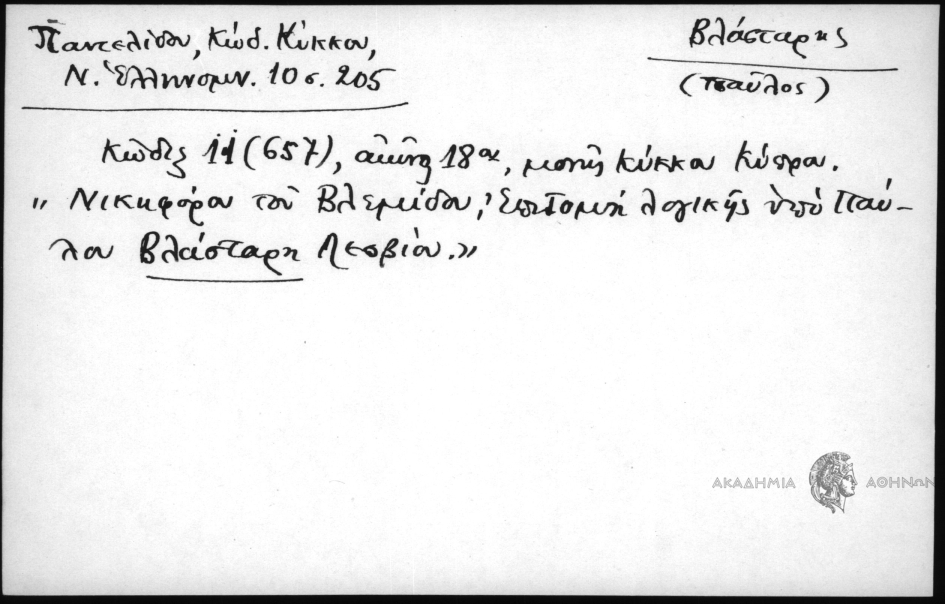 Παντελίδου, Κώδ. Κύκκου,
Ν. Ἑλληνομν. 10 σ. 205
Βλάσταρης
(Παῦλος)
Κῶδιξ 11 (657), αἰῶνος 18ου, μονῆς Κύκκου Κύπρου.
"Νικηφόρου τοῦ Βλεμίδου, Ἐπιτομὴ λογικῆς ὑπὸ Παύ-
λου Βλάσταρη Λεσβίου."
ΑΚΑΔΗΜΙΑ ΑΘΗΝΩΝ